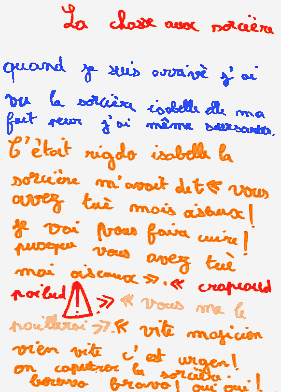 La chasse aux sorcière
quand je suis arrivè j'ai
vu la sorcière isabelle elle ma
fait peur j'ai même sursauter.
C'était rigolo isabelle la
sorcière m'avait dit « vous
avez tuè mais oiseaux !
Je vai vous faire cuire !
puisque vous avez tuè
mai oiseaux ». « crapaud
poilud » « vous me le
» « vite magicien
vien vite c'est urgen !
on capturer la sorcière
bravo bravo ! oui oui !